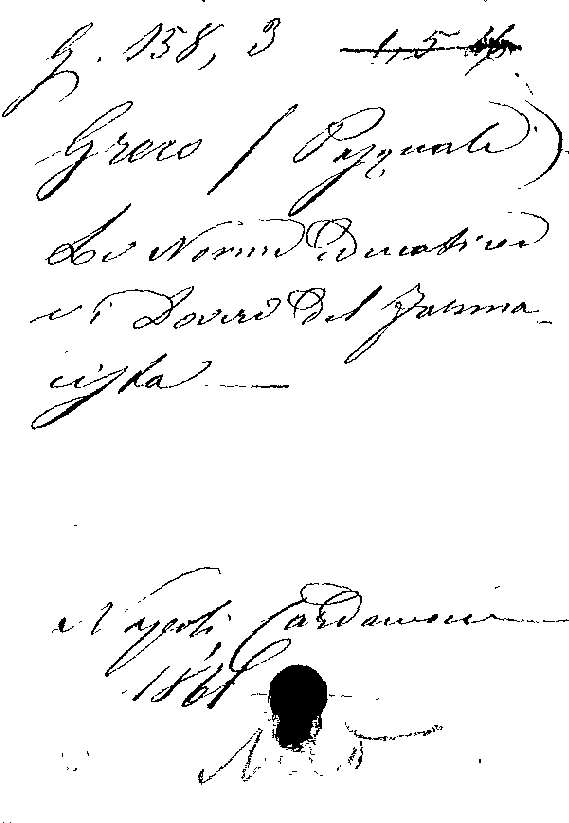 G. 158, 3
Greco (Pasquale)
Le Norme Educatrici
e i Doveri del Farma-
cista —
Napoli, Cardamone
186